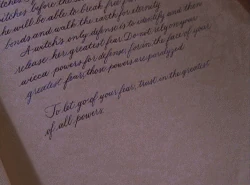 witches before the
he will be able to break free
bonds and walk the earth for eternity
A witch's only defense is to identify and then
release her greatest fear. Do not rely on your
wiccan powers for defense, for in the face of your
greatest fear, these powers are paralyzed
To let go of your fear, trust in the greatest
of all powers.